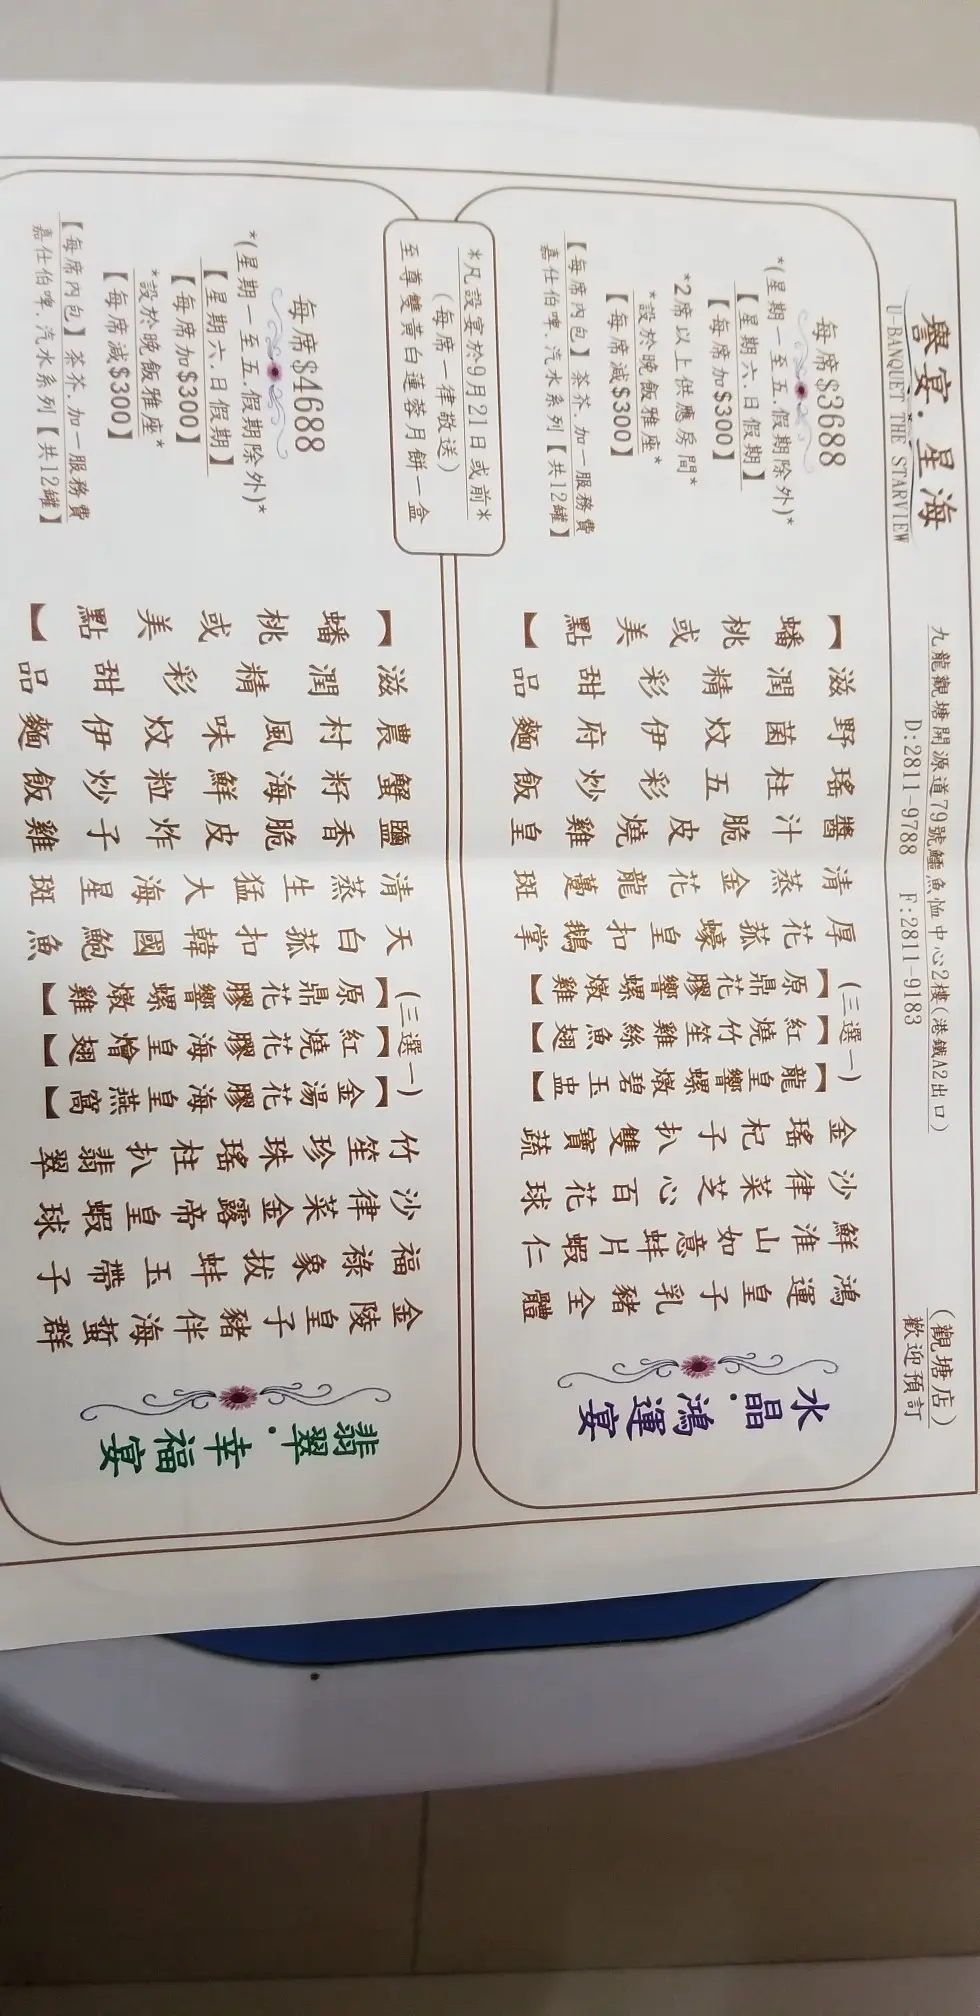 譽宴·星海
U BANQUET THE STARVIEW
九龍觀塘開源道79號鱷魚恤中心2樓(港鐵A2出口)
D:2811-9788 F:2811-9183
(觀塘店)
歡迎預訂
水晶·鴻運宴
鴻運皇子乳豬全體
鮮淮山如意蚌片蝦仁
沙律菜芝心百花球
金瑤杞子扒雙寶蔬
(三選一)
【龍皇響螺燉碧玉盅】
【紅燒竹笙雞絲魚翅】
【原鼎花膠響螺燉雞】
厚花菰蠔皇扣鵝掌
清蒸金花龍躉斑
醬汁脆皮燒雞皇
瑤柱五彩炒飯
野菌炆伊府麵
滋潤精彩甜品
【蟠桃或美點】
每席$3688
*(星期一至五.假期除外)*
【星期六.日假期】
【每席加$300】
*2席以上供應房間*
*設於晚飯雅座*
【每席減$300】
【每席內包】茶芥.加一服務費
嘉仕伯啤.汽水系列【共12罐】
*凡設宴於9月21日或前*
(每席一律敬送)
至尊雙黃白蓮蓉月餅一盒
翡翠·幸福宴
金陵皇子豬伴海蜇群
福祿象拔蚌玉帶子
沙律菜金露帝皇蝦球
竹笙珍珠瑤柱扒翡翠
(三選一)
【金湯花膠海皇燕窩】
【紅燒花膠海皇燴翅】
【原鼎花膠響螺燉雞】
天白菰扣韓國鮑魚
清蒸生猛大海星斑
鹽香脆皮炸子雞
蟹籽海鮮粒炒飯
農村風味炆伊麵
滋潤精彩甜品
【蟠桃或美點】
每席$4688
*(星期一至五.假期除外)*
【星期六.日假期】
【每席加$300】
*設於晚飯雅座*
【每席減$300】
【每席內包】茶芥.加一服務費
嘉仕伯啤.汽水系列【共12罐】